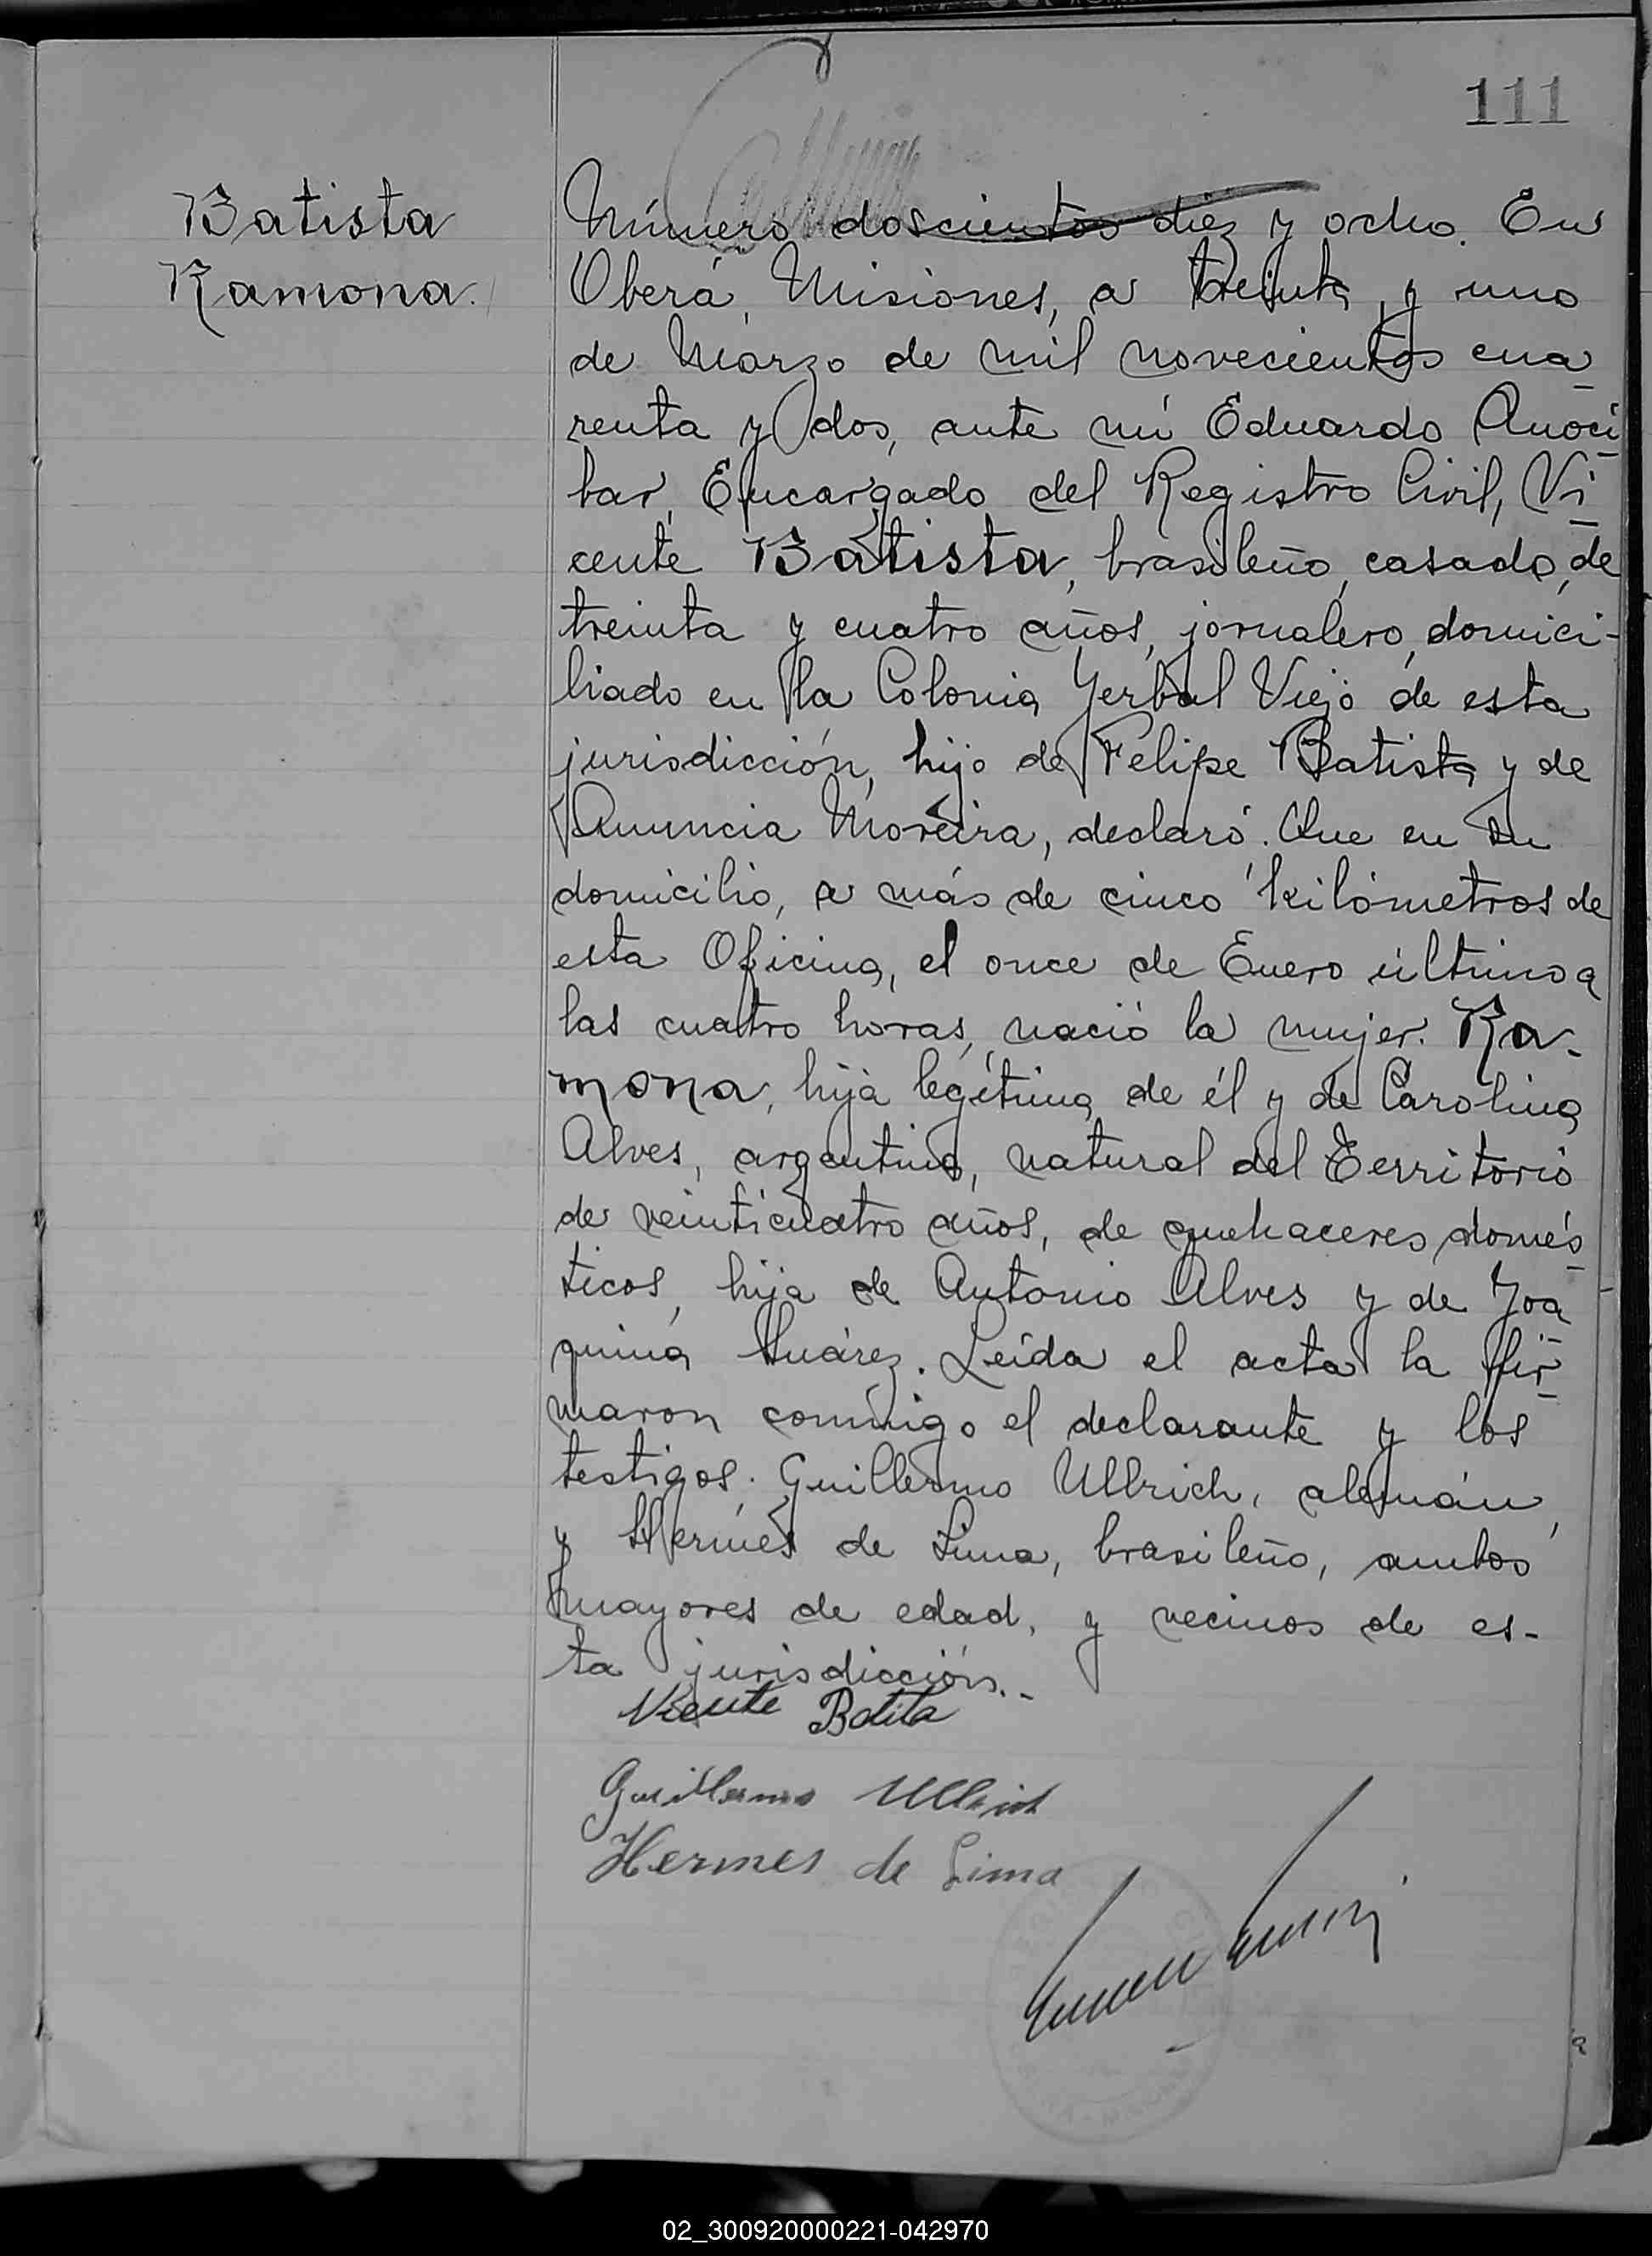 111
Batista
Ramona.
Número doscientos diez y ocho. En
Oberá, Misiones, a treinta y uno
de Marzo de mil novecientos cua
renta y dos, ante mí Eduardo Anoci
bar, Encargado del Registro Civil, Vi
cente Batista, brasileño, casado, de
treinta y cuatro años, jornalero, domici-
liado en la Colonia Yerbal Viejo de esta
jurisdicción, hijo de Felipe Batista y de
Anuncia Moreira, declaró. Que en su
domicilio, a más de cinco kilómetros de
esta Oficina, el once de Enero último a
las cuatro horas, nació la mujer. Ra-
mona, hija legítima de él y de Carolina
Alves, argentina, natural del Territorio
de veinticuatro años, de quehaceres domés
ticos, hija de Antonio Alves y de Joa
quina Suárez. Leída el acta la fir
maron conmigo el declarante y los
testigos: Guillermo Ullrich, alemán,
y Hermes de Lima, brasileño, ambos
mayores de edad, y vecinos de es-
ta jurisdicción.-
Vicente Batita
Guillermo Ullrich
Hermes de Lima
02_300920000221-042970